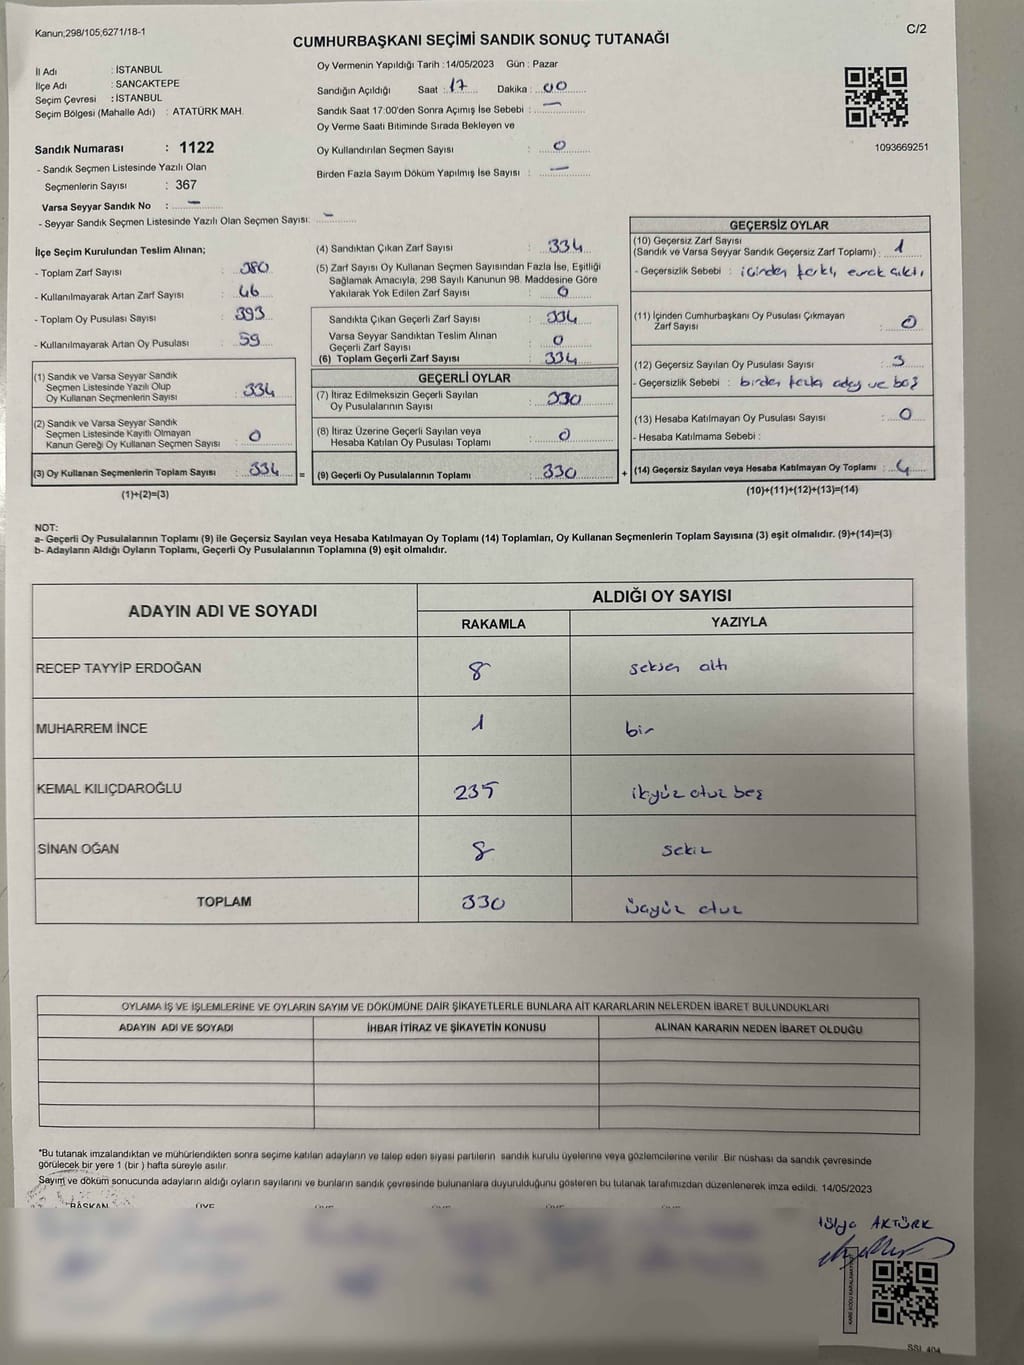 Kanun;298/105;6271/18-1
C/2
CUMHURBAŞKANI SEÇİMİ SANDIK SONUÇ TUTANAĞI
İl Adı : İSTANBUL
İlçe Adı : SANCAKTEPE
Seçim Çevresi : İSTANBUL
Seçim Bölgesi (Mahalle Adı) : ATATÜRK MAH.
Sandık Numarası : 1122
- Sandık Seçmen Listesinde Yazılı Olan
Seçmenlerin Sayısı : 367
Varsa Seyyar Sandık No : —
- Seyyar Sandık Seçmen Listesinde Yazılı Olan Seçmen Sayısı: —
Oy Vermenin Yapıldığı Tarih :14/05/2023 Gün : Pazar
Sandığın Açıldığı Saat : 17 Dakika : 00
Sandık Saat 17.00'den Sonra Açımış İse Sebebi : —
Oy Verme Saati Bitiminde Sırada Bekleyen ve
Oy Kullandırılan Seçmen Sayısı : 0
Birden Fazla Sayım Döküm Yapılmış İse Sayısı : —
1093669251
İlçe Seçim Kurulundan Teslim Alınan;
- Toplam Zarf Sayısı : 380
- Kullanılmayarak Artan Zarf Sayısı : 46
- Toplam Oy Pusulası Sayısı : 393
- Kullanılmayarak Artan Oy Pusulası : 59
(1) Sandık ve Varsa Seyyar Sandık
Seçmen Listesinde Yazılı Olup
Oy Kullanan Seçmenlerin Sayısı : 334
(2) Sandık ve Varsa Seyyar Sandık
Seçmen Listesinde Kayıtlı Olmayan
Kanun Gereği Oy Kullanan Seçmen Sayısı : 0
(3) Oy Kullanan Seçmenlerin Toplam Sayısı : 334 =
(1)+(2)=(3)
(4) Sandıktan Çıkan Zarf Sayısı : 334
(5) Zarf Sayısı Oy Kullanan Seçmen Sayısından Fazla İse, Eşitliği
Sağlamak Amacıyla, 298 Sayılı Kanunun 98. Maddesine Göre
Yakılarak Yok Edilen Zarf Sayısı : 0
Sandıkta Çıkan Geçerli Zarf Sayısı : 334
Varsa Seyyar Sandıktan Teslim Alınan
Geçerli Zarf Sayısı : 0
(6) Toplam Geçerli Zarf Sayısı : 334
GEÇERLİ OYLAR
(7) İtiraz Edilmeksizin Geçerli Sayılan
Oy Pusulalarının Sayısı : 330
(8) İtiraz Üzerine Geçerli Sayılan veya
Hesaba Katılan Oy Pusulası Toplamı : 0
(9) Geçerli Oy Pusulalarının Toplamı : 330 +
GEÇERSİZ OYLAR
(10) Geçersiz Zarf Sayısı
(Sandık ve Varsa Seyyar Sandık Geçersiz Zarf Toplamı) : 1
- Geçersizlik Sebebi : içinden farklı evrak çıktı
(11) İçinden Cumhurbaşkanı Oy Pusulası Çıkmayan
Zarf Sayısı : 0
(12) Geçersiz Sayılan Oy Pusulası Sayısı : 3
- Geçersizlik Sebebi : birden fazla aday ve boş
(13) Hesaba Katılmayan Oy Pusulası Sayısı : 0
- Hesaba Katılmama Sebebi :
(14) Geçersiz Sayılan veya Hesaba Katılmayan Oy Toplamı : 4
(10)+(11)+(12)+(13)=(14)
NOT:
a- Geçerli Oy Pusulalarının Toplamı (9) ile Geçersiz Sayılan veya Hesaba Katılmayan Oy Toplamı (14) Toplamları, Oy Kullanan Seçmenlerin Toplam Sayısına (3) eşit olmalıdır. (9)+(14)=(3)
b- Adayların Aldığı Oyların Toplamı, Geçerli Oy Pusulalarının Toplamına (9) eşit olmalıdır.
ADAYIN ADI VE SOYADI ALDIĞI OY SAYISI
RAKAMLA YAZIYLA
RECEP TAYYİP ERDOĞAN 8 seksen altı
MUHARREM İNCE 1 bir
KEMAL KILIÇDAROĞLU 235 ikiyüz otuz beş
SİNAN OĞAN 8 sekiz
TOPLAM 330 üçyüz otuz
OYLAMA İŞ VE İŞLEMLERİNE VE OYLARIN SAYIM VE DÖKÜMÜNE DAİR ŞİKAYETLERLE BUNLARA AİT KARARLARIN NELERDEN İBARET BULUNDUKLARI
ADAYIN ADI VE SOYADI İHBAR İTİRAZ VE ŞİKAYETİN KONUSU ALINAN KARARIN NEDEN İBARET OLDUĞU
*Bu tutanak imzalandıktan ve mühürlendikten sonra seçime katılan adayların ve talep eden siyasi partilerin sandık kurulu üyelerine veya gözlemcilerine verilir. Bir nüshası da sandık çevresinde
görülecek bir yere 1 (bir ) hafta süreyle asılır.
Sayım ve döküm sonucunda adayların aldığı oyların sayılarını ve bunların sandık çevresinde bulunanlara duyurulduğunu gösteren bu tutanak tarafımızdan düzenlenerek imza edildi. 14/05/2023
BAŞKAN ÜYE
AKTÜRK
SSI 404